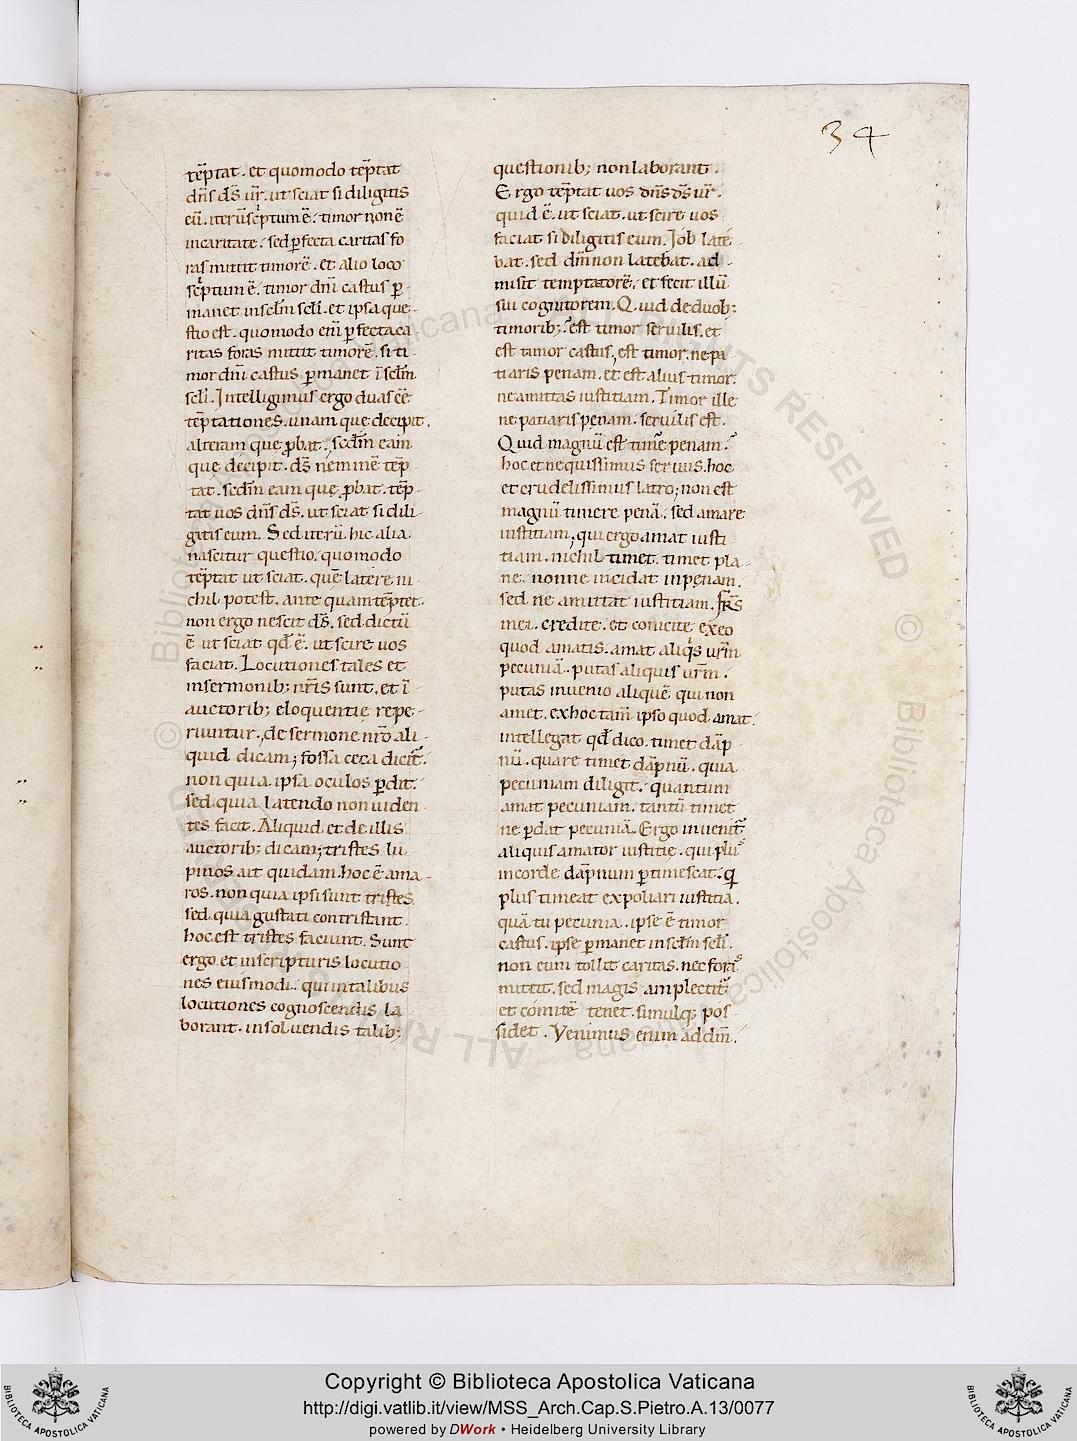 34
tēptat. et quomodo tēptat
dn̄s ds̄ ur̄. ut sciat si diligitis
eū. iterū scͥptum ē. timor non ē
in caritate. sed ꝑfecta caritas fo
ras mittit timorē. et alio loco
scͥptum ē. timor dn̄i castus ꝑ-
manet in sclm̄ scli. et ipsa que-
stio est. quomodo eni ꝑfecta ca
ritas foras mittit timorē. si ti-
mor dn̄i castus ꝑmanet ī sclm̄
scli. Intelligimus ergo duas eē
tēptationes. unam que decipit.
alteram que ꝓbat. scdm̄ eam
que decipit. ds̄ neminē tēp
tat. scdm̄ eam que ꝓbat. tēp-
tat uos dn̄s ds̄. ut sciat si dili-
gitis eum. Sed iterū hic alia
nascitur questio. quomodo
tēptat ut sciat. quē latere ni-
chil potest. ante quam tēptet.
non ergo nescit ds̄. sed dictū
ē ut sciat qđ ē. ut scire uos
faciat. Locutiones tales et
in sermonib; nr̄is sunt. et ī
auctorib; eloquentię repe-
riuntur. de sermone nr̄o ali-
quid dicam; fossa ceca dicit̄.
non quia ipsa oculos ꝑdit.
sed quia latendo non uiden-
tes facit. Aliquid et de illis
auctorib; dicam; tristes lu
pinos ait quidam. hoc ē ama-
ros. non quia ipsi sunt tristes
sed quia gustati contristant.
hoc est tristes faciunt. Sunt
ergo et in scripturis locutio
nes eiusmodi. qui in talibus
locutiones cognoscendis la
borant. in soluendis talib;
questionib; non laborant.
Ergo tēptat uos dn̄s ds̄ ur̄.
quid ē. ut sciat. ut scire uos
faciat si diligitis eum. Iob late-
bat. sed dn̄m non latebat. ad-
misit temptatorē. et fecit illū
sui cognitorem. Quid de duob;
timorib;. est timor seruilis. et
est timor castus. est timor. ne pa
tiaris penam. et est alius timor.
ne amittas iustitiam. Timor ille
ne patiaris pęnam. seruilis est.
Quid magnū est timē penam.
hoc et nequissimus seruus. hoc
et crudelissimus latro; non est
magnū timere penā. sed amare
iustitiam. qui ergo amat iusti
tiam. nichil timet. timet pla
ne. non ne incidat in pęnam.
sed ne amittat iustitiam. fr̄s
mei. credite. et coniicite exeo
quod amatis. amat aliqͥs ur̄m
pecuniā. putas aliquis ur̄m.
putas inuenio aliquē qui non
amet. ex hoc tam̄ ipso quod amat.
intellegat qđ dico. timet dāp
nū. quare timet dāpnū. quia
pecuniam diligit. quantum
amat pecuniam. tantū timet
ne ꝑdat pecuniā. Ergo inuenit̄
aliquis amator iustitię. qui plus
in corde dāpnum ꝑtimescat. qͥ
plus timeat expoliari iustitia.
quā tu pecunia. ipse ē timor
castus. ipse ꝑmanet in sclm̄ scli.
non eum tollit caritas. nec foras
mittit. sed magis amplectit̄
et comitē tenet. simulq; pos-
sidet. Venimus enim ad dn̄m.
Copyright © Biblioteca Apostolica Vaticana
http://digi.vatlib.it/view/MSS_Arch.Cap.S.Pietro.A.13/0077
powered by DWork • Heidelberg University Library
BIBLIOTECA APOSTOLICA VATICANA
BIBLIOTECA APOSTOLICA VATICANA
© Biblioteca Apostolica Vaticana ALL RIGHTS RESERVED
© Biblioteca Apostolica Vaticana ALL RIGHTS RESERVED